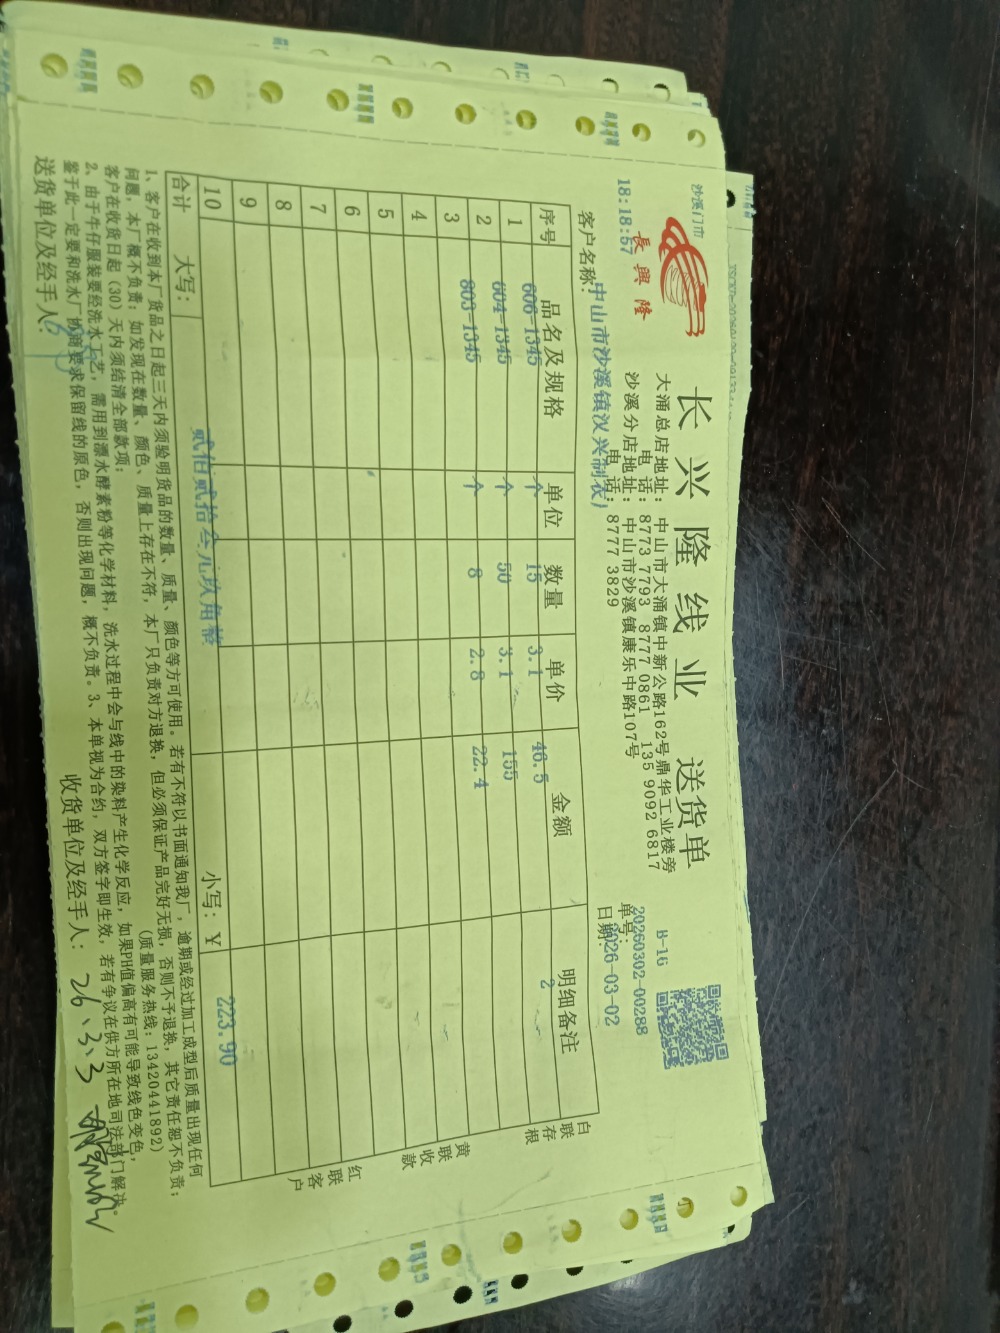 沙溪门市
長興隆
18:18:57
长兴隆线业 送货单
大涌总店地址: 中山市大涌镇中新公路162号鼎华工业楼旁
电话: 8773 7793 8777 0861 135 9092 6817
沙溪分店地址: 中山市沙溪镇康乐中路107号
电话: 8777 3829
B-16
单号: 20260302-00288
日期: 2026-03-02
客户名称: 中山市沙溪镇汉兴制衣)
序号 品名及规格 单位 数量 单价 金额 明细备注
1 606-1345 个 15 3.1 46.5 2
2 604-1345 个 50 3.1 155
3 803-1345 个 8 2.8 22.4
4
5
6
7
8
9
10
合计 大写: 贰佰贰拾叁元玖角整 小写: ¥ 223.90
白联存根
黄联收款
红联客户
1、客户在收到本厂货品之日起三天内须验明货品的数量、质量、颜色等方可使用。若有不符以书面通知我厂,逾期或经过加工成型后质量出现任何
问题,本厂概不负责;如发现在数量、颜色、质量上存在不符,本厂只负责对方退换,但必须保证产品完好无损,否则不予退换,其它责任恕不负责;
客户在收货日起(30)天内须结清全部款项; (质量服务热线:13420441892)
2、由于牛仔服装要经洗水工艺,需用到漂水酵素粉等化学材料,洗水过程中会与线中的染料产生化学反应,如果PH值偏高有可能导致线色变色,
鉴于此一定要和洗水厂协商要求保留线的原色,否则出现问题,概不负责。3、本单视为合约,双方签字即生效,若有争议在供方所在地司法部门解决。
送货单位及经手人: 收货单位及经手人: 26、3、3